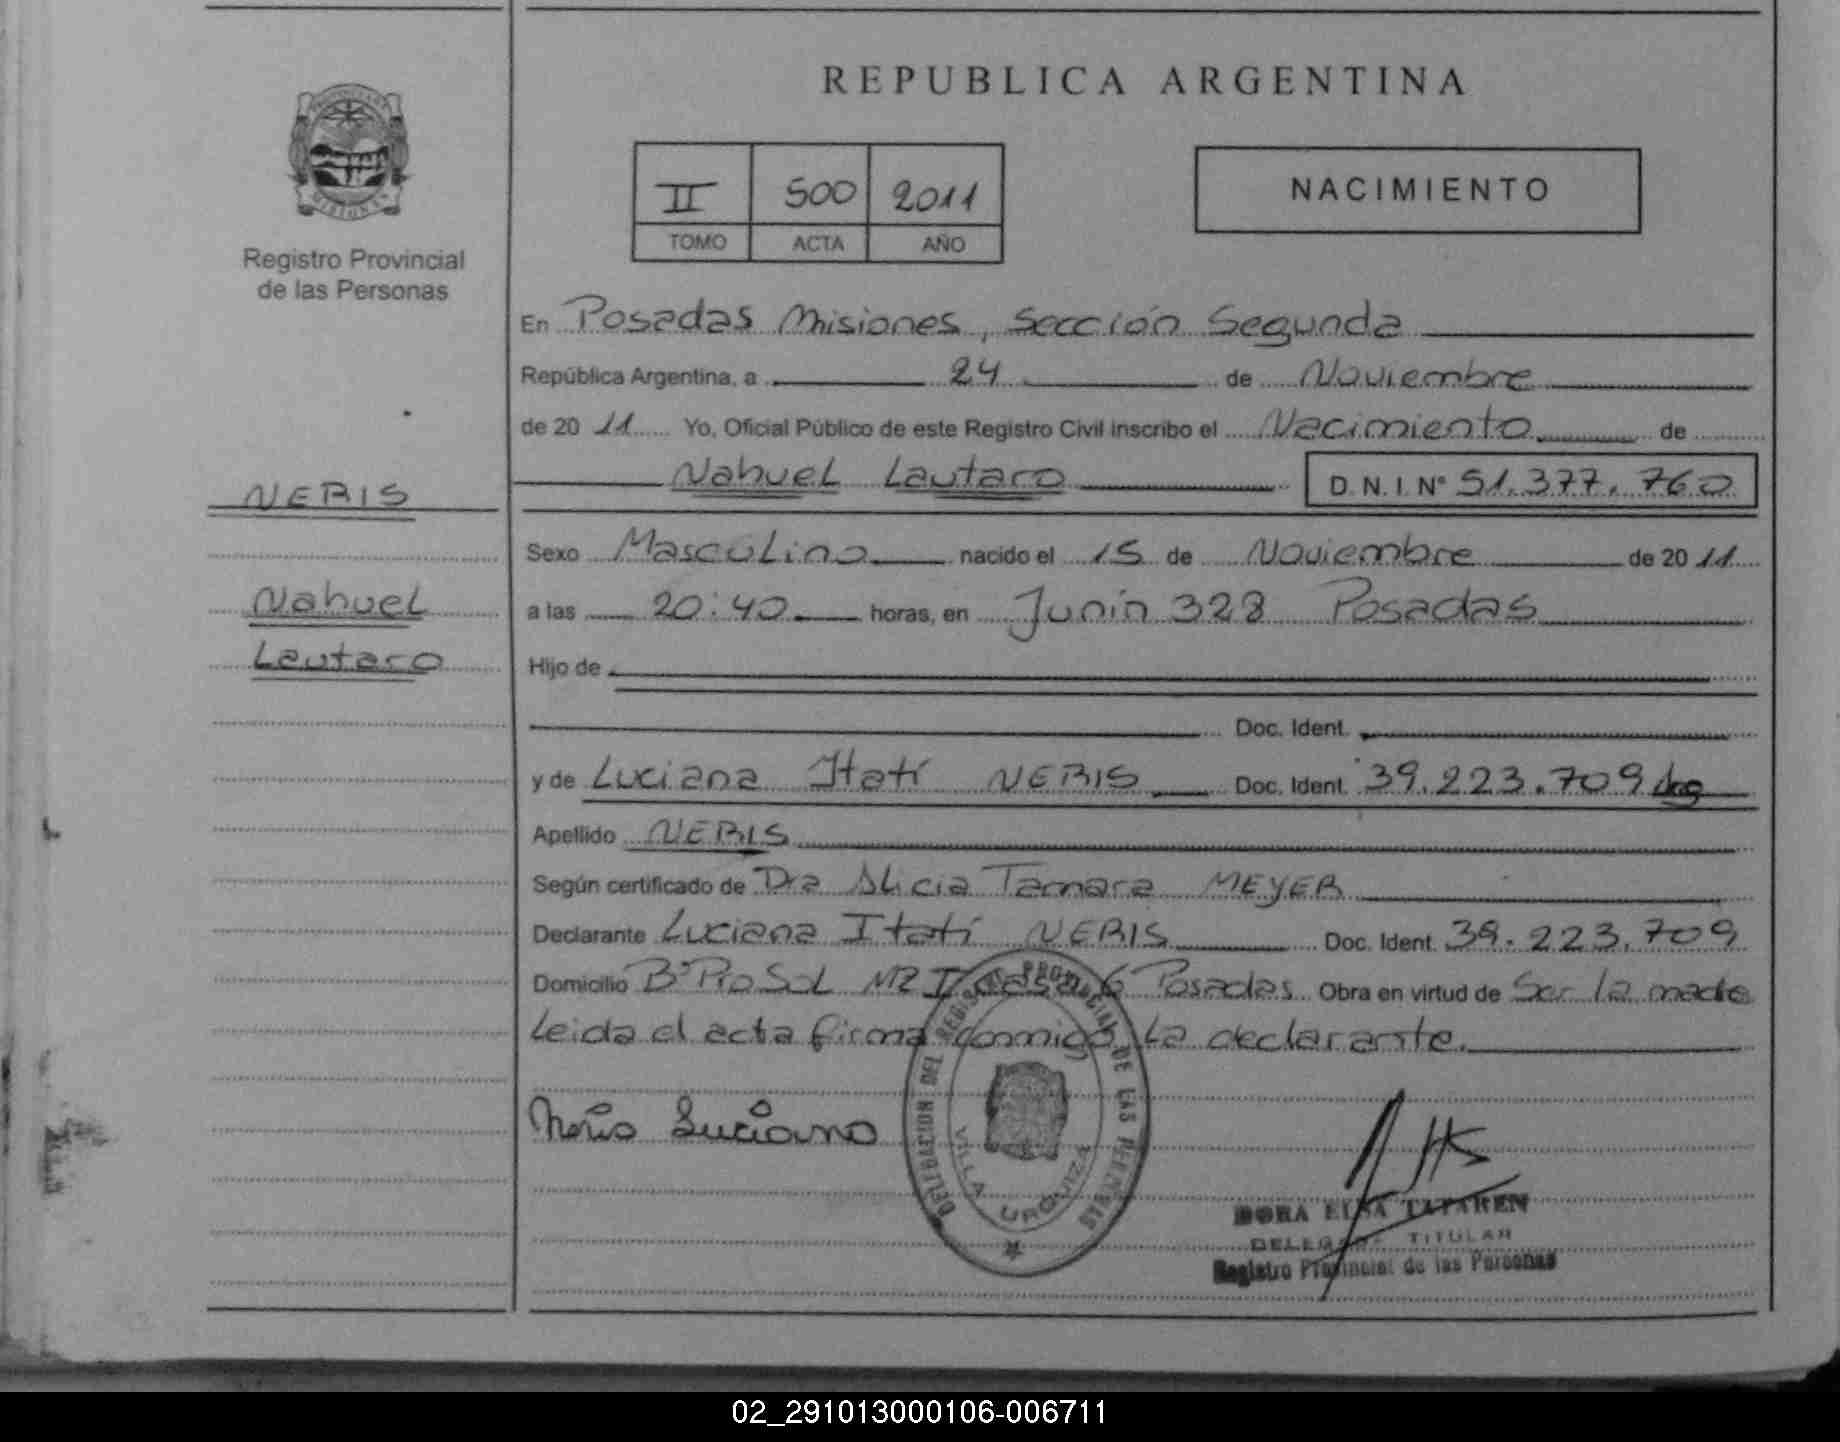 REPUBLICA ARGENTINA
PROVINCIA DE
MISIONES
Registro Provincial
de las Personas
II 500 2011
TOMO ACTA AÑO
NACIMIENTO
En Posadas Misiones, Sección Segunda
República Argentina, a 24 de Noviembre
de 2011 Yo, Oficial Público de este Registro Civil inscribo el Nacimiento de
Nahuel Lautaro D.N.I. Nº 51.377.760
NERIS
Nahuel
Lautaro
Sexo Masculino nacido el 15 de Noviembre de 2011
a las 20:40 horas, en Junín 328 Posadas
Hijo de
Doc. Ident.
y de Luciana Itatí NERIS Doc. Ident. 39.223.709
Apellido NERIS
Según certificado de Dra Alicia Tamara MEYER
Declarante Luciana Itatí NERIS Doc. Ident. 39.223.709
Domicilio Bº Pro Sol MZ I casa 6 Posadas Obra en virtud de Ser la madre
Leida el acta firma conmigo La declarante.
Neris Luciana
DELEGACION DEL REGISTRO PROVINCIAL DE LAS PERSONAS
VILLA URQUIZA
DORA ELSA
DELEGADA TITULAR
Registro Provincial de las Personas
02_291013000106-006711